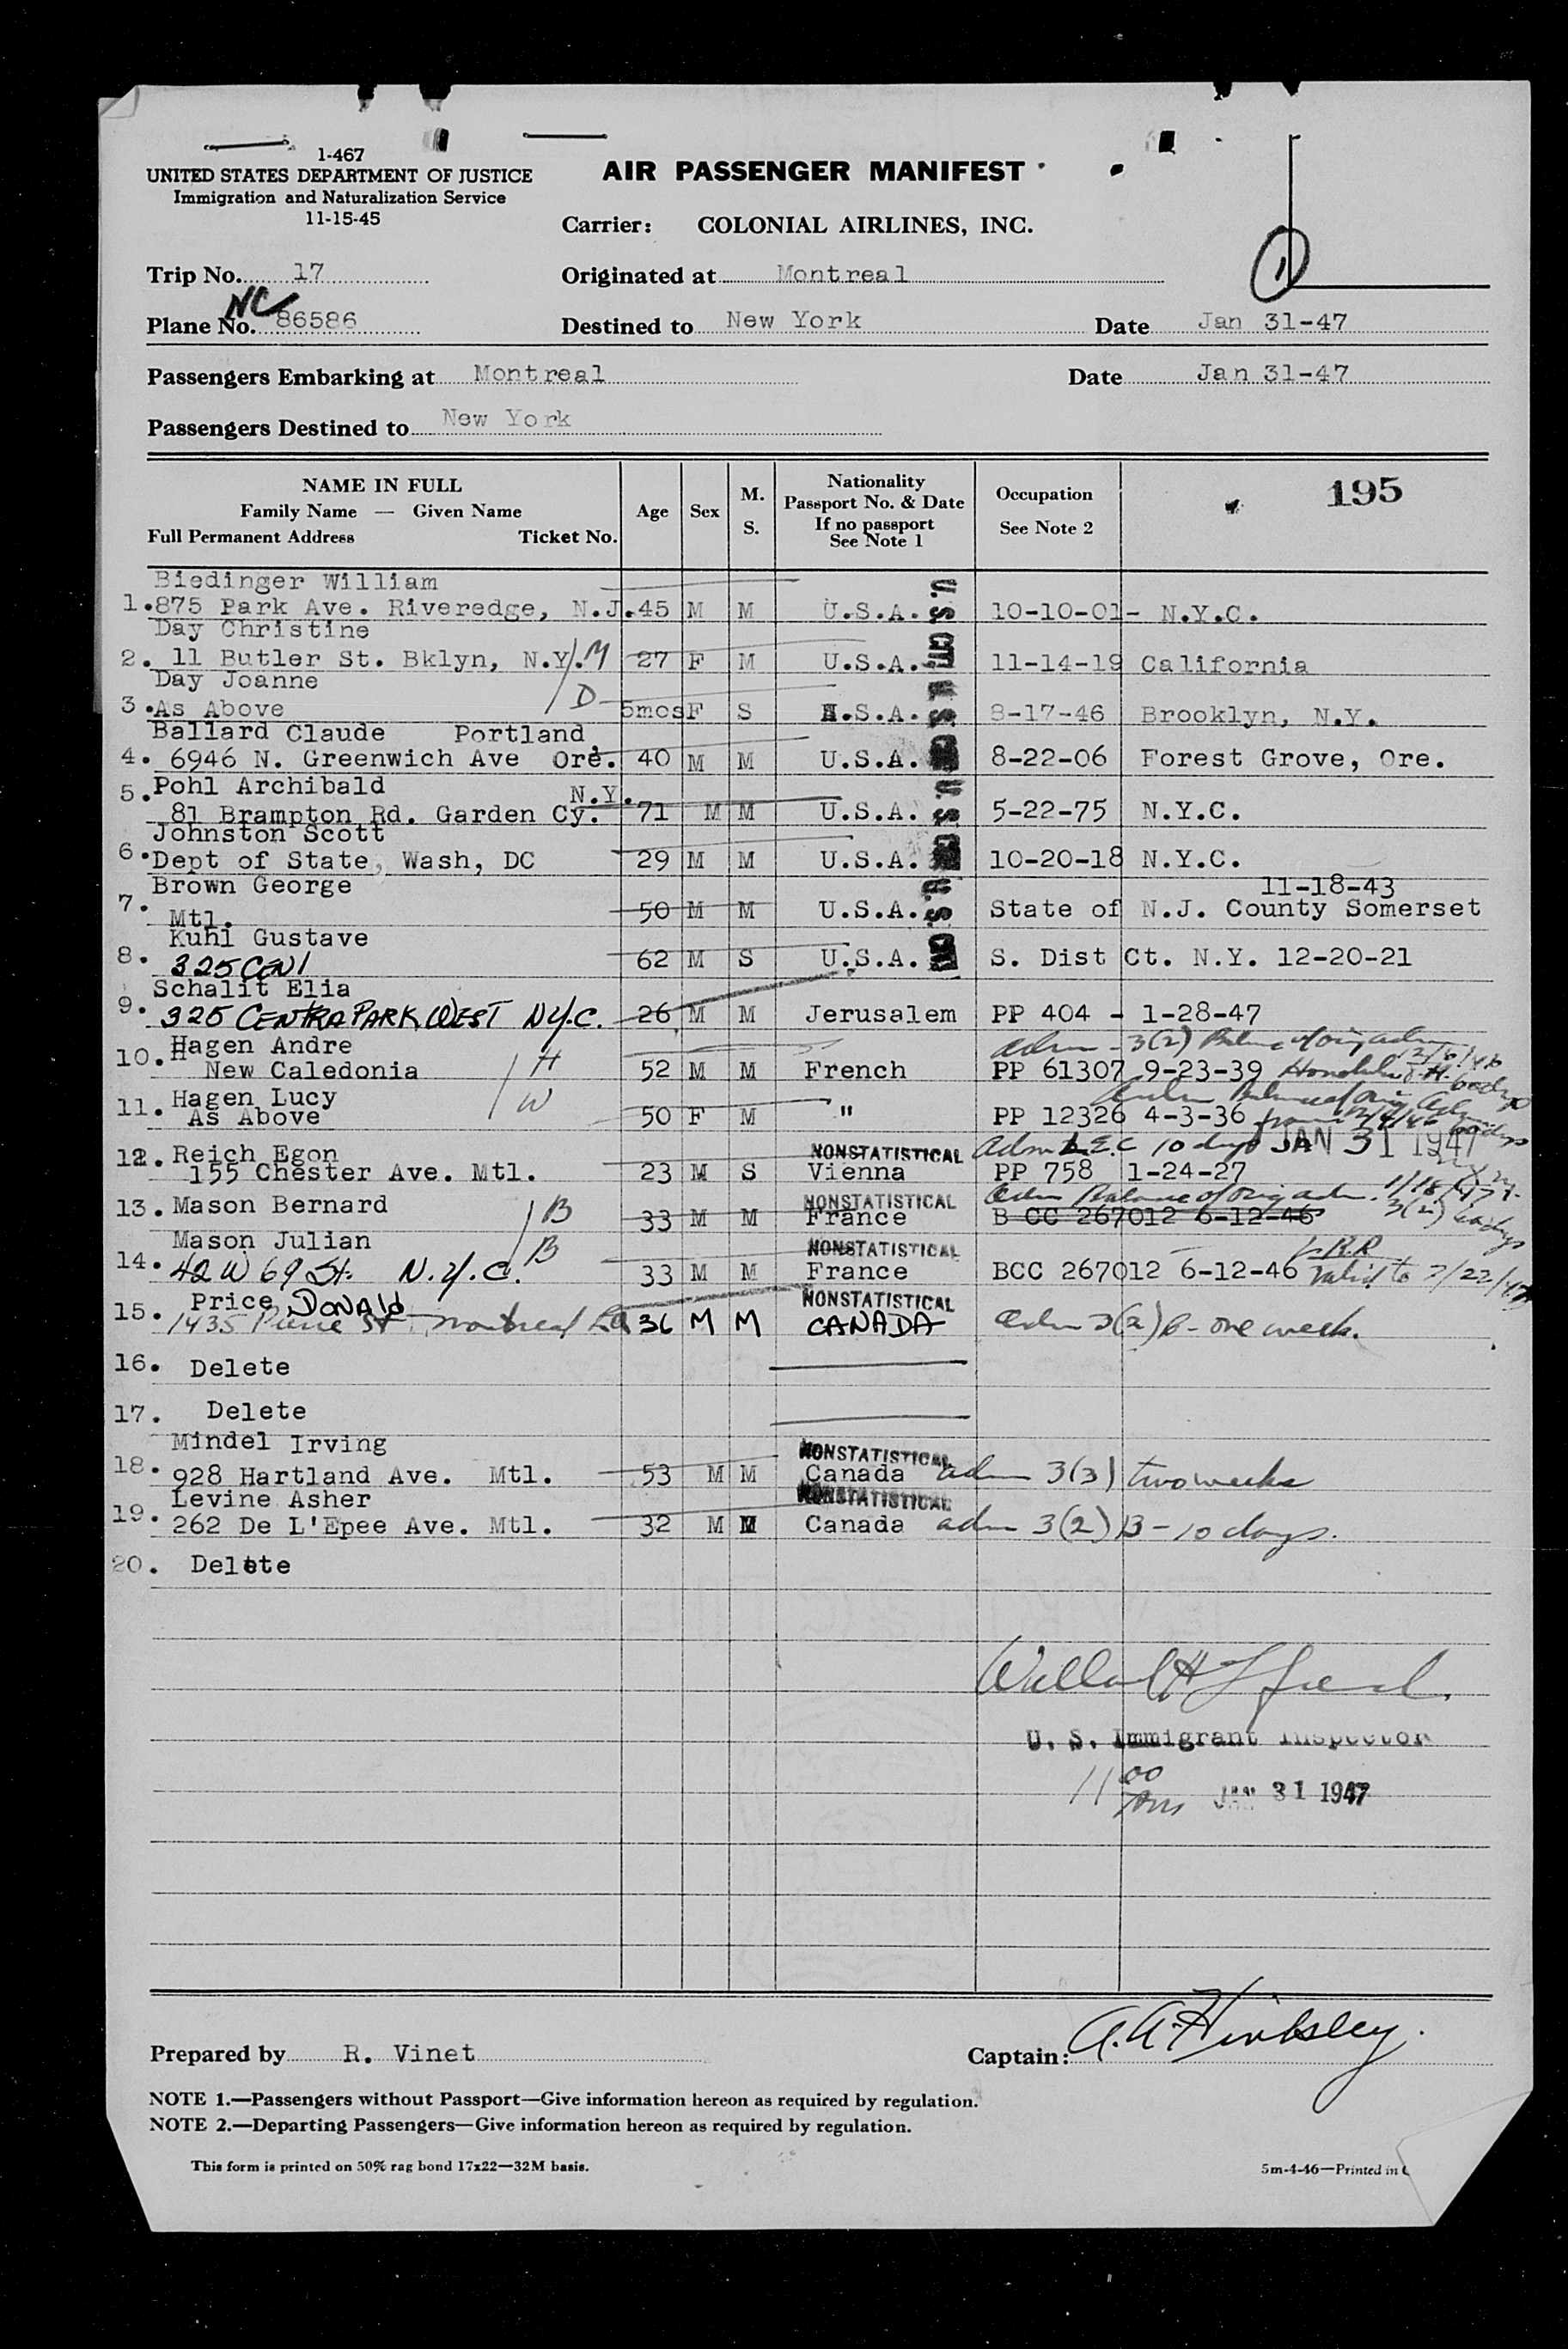 1-467
UNITED STATES DEPARTMENT OF JUSTICE
Immigration and Naturalization Service
11-15-45
AIR PASSENGER MANIFEST
Carrier: COLONIAL AIRLINES, INC.
1
Trip No. 17 Originated at Montreal
NC
Plane No. 86586 Destined to New York Date Jan 31-47
Passengers Embarking at Montreal Date Jan 31-47
Passengers Destined to New York
NAME IN FULL
Family Name — Given Name
Full Permanent Address Ticket No.
Age Sex M. S.
Nationality
Passport No. & Date
If no passport
See Note 1
Occupation
See Note 2
195
Biedinger William
1. 875 Park Ave. Riveredge, N.J. 45 M M U.S.A. 10-10-01- N.Y.C.
Day Christine
2. 11 Butler St. Bklyn, N.Y. M 27 F M U.S.A. 11-14-19 California
Day Joanne
3. As Above D 5mos F S U.S.A. 8-17-46 Brooklyn, N.Y.
Ballard Claude Portland,
4. 6946 N. Greenwich Ave Ore. 40 M M U.S.A. 8-22-06 Forest Grove, Ore.
5. Pohl Archibald N.Y.
81 Brampton Rd. Garden Cy. 71 M M U.S.A. 5-22-75 N.Y.C.
Johnston Scott
6. Dept of State, Wash, DC 29 M M U.S.A. 10-20-18 N.Y.C.
Brown George 11-18-43
7. Mtl. 50 M M U.S.A. State of N.J. County Somerset
Kuhl Gustave
8. 325 CEN 62 M S U.S.A. S. Dist Ct. N.Y. 12-20-21
Schalit Elia
9. 325 CENTRA PARK WEST N.Y.C. 26 M M Jerusalem PP 404 - 1-28-47
adm - 3(2) Balance of orig adm
10. Hagen Andre H
New Caledonia 52 M M French PP 61307 9-23-39 Honolulu T.H.
11. Hagen Lucy W
As Above 50 F M " PP 12326 4-3-36
12. Reich Egon NONSTATISTICAL Adm 10 days JAN 31 1947
155 Chester Ave. Mtl. 23 M S Vienna PP 758 1-24-27
adm Balance of orig adm. 1/18/47
13. Mason Bernard B NONSTATISTICAL
33 M M France B CC 267012 6-12-46
Mason Julian B NONSTATISTICAL
14. 42 W 69 St. N.Y.C. 33 M M France BCC 267012 6-12-46 Valid to 2/22/47
15. Price, DONALD NONSTATISTICAL
1435 St. Montreal 36 M M CANADA adm 3(2) B - one week.
16. Delete
17. Delete
Mindel Irving NONSTATISTICAL
18. 928 Hartland Ave. Mtl. 53 M M Canada adm 3(3) two weeks
Levine Asher NONSTATISTICAL
19. 262 De L'Epee Ave. Mtl. 32 M M Canada adm 3(2) B - 10 days.
20. Delete
U. S. Immigrant Inspector
11 00 JAN 31 1947
Prepared by R. Vinet
Captain: A.A. Hinksley.
NOTE 1.—Passengers without Passport—Give information hereon as required by regulation.
NOTE 2.—Departing Passengers—Give information hereon as required by regulation.
This form is printed on 50% rag bond 17x22—32M basis.
5m-4-46—Printed in